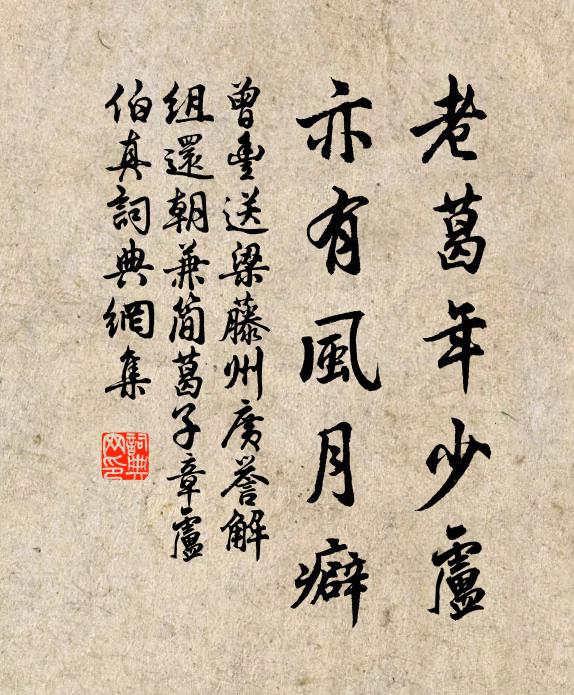 老葛年少盧
亦有風月癖
曾豐送梁藤州廣譽解
組還朝兼簡葛子章盧
伯真詞典網集
詞典網印